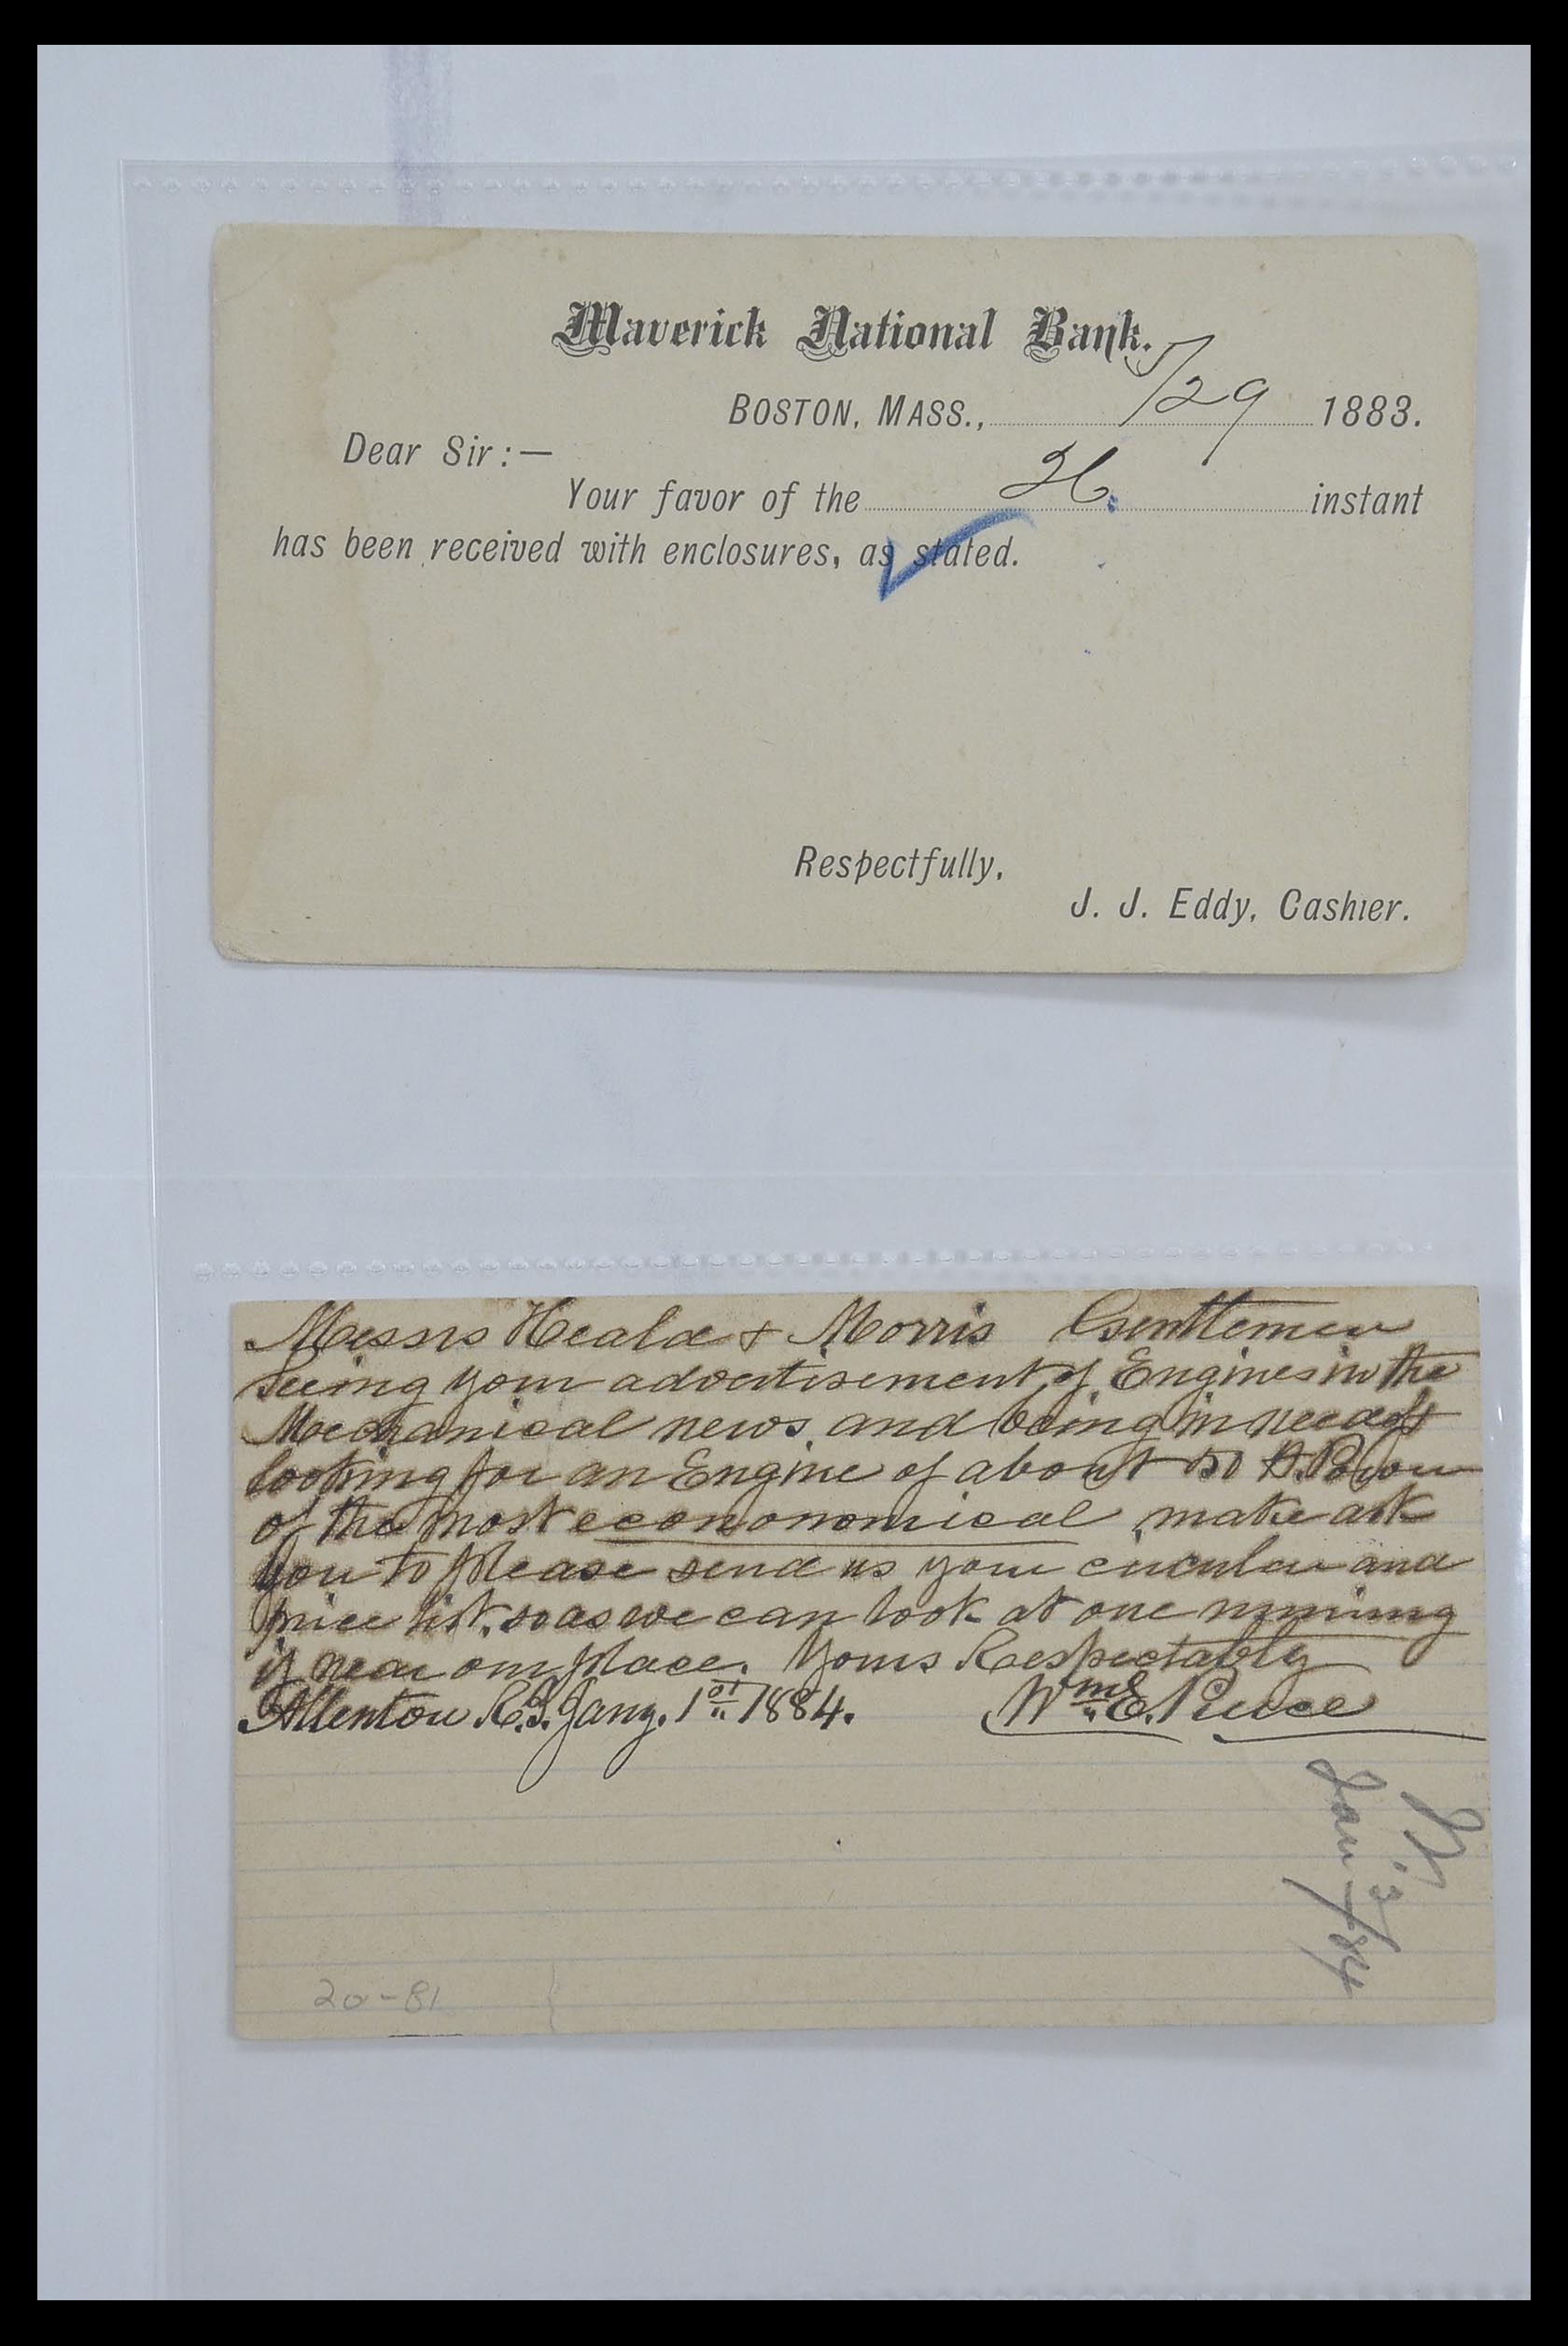 Maverick National Bank.
BOSTON, MASS., 5/29 1883.
Dear Sir:—
Your favor of the 26. instant
has been received with enclosures, as stated.
Respectfully,
J. J. Eddy, Cashier.
Messrs Heald & Morris Gentlemen
Seeing your advertisement of Engines in the
Mechanical news, and being in need of &
looking for an Engine of about 50 H. Power
of the most econonomical make ask
you to please send us your circular and
price list, so as we can look at one running
if near our place. Yours Respectably
Allenton R.I. Jany. 1st 1884. Wm. E. Peirce
Jan 3/84
20-81